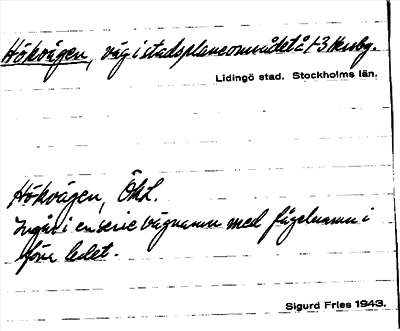 Hökvägen, väg i stadsplaneområdet å 1-3 Kersby.
Lidingö stad. Stockholms län.
Hökvägen, ÖhL.
Ingår i en serie vägnamn med fågelnamn i
förra ledet.
Sigurd Fries 1943.